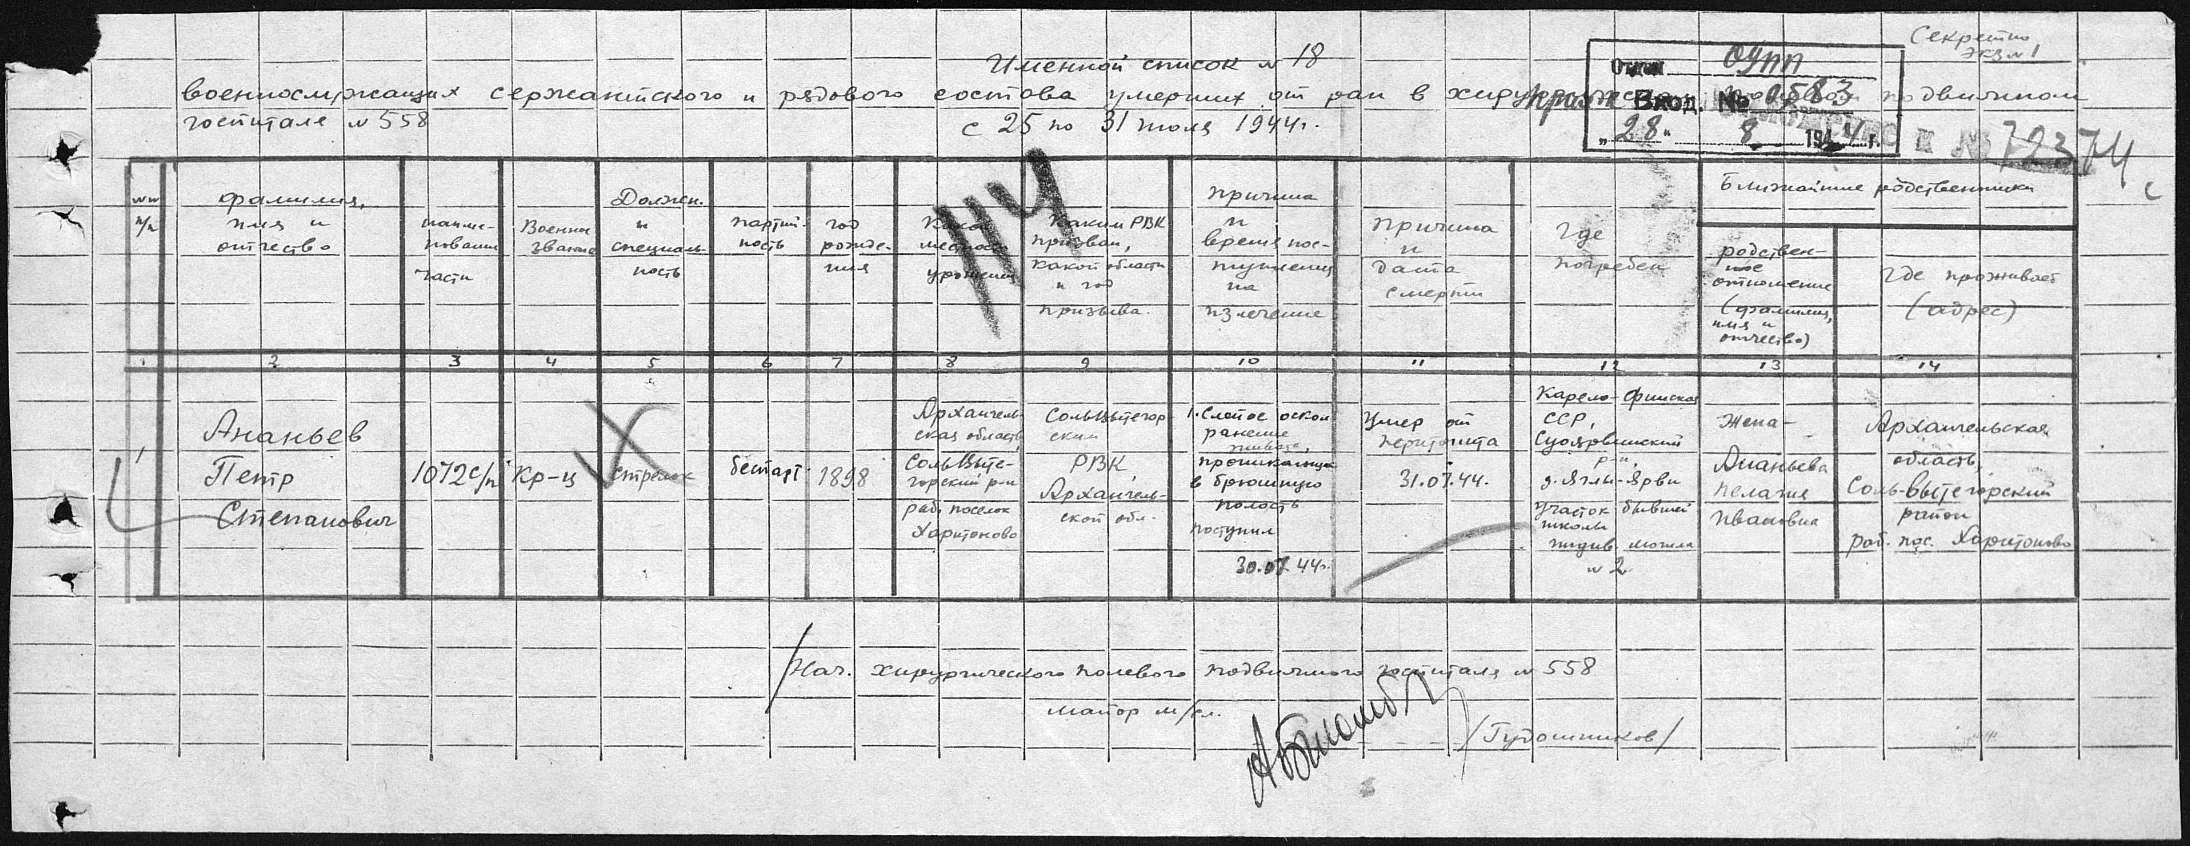 Секретно
экз №1
Именной список № 18
военнослужащих сержантского и рядового состава умерших от ран в хирургическом полевом подвижном
госпитале № 558
с 25 по 31 июля 1944г.
Отдел ОУПП
Вход. № 0583
„28" 8 1944 г.
№ 72374 с
114
№№ п/п
фамилия,
имя и
отчество
наиме-
нование
части
Военное
звание
Должн.
и
специаль-
ность
партий-
ность
год
рожде-
ния
Какой
местности
уроженец
Каким РВК
призван,
какой области
и год
призыва.
Причина
и
время пос-
тупления
на
излечение
Причина
и
дата
смерти
Где
погребен
Ближайшие родственники
родствен-
ное
отношение
(фамилия,
имя и
отчество)
где проживает
(адрес)
1 2 3 4 5 6 7 8 9 10 11 12 13 14
1
Ананьев
Петр
Степанович
1072с/п
Кр-ц
стрелок
беспарт
1898
Архангель-
ская область,
СольВыче-
горский р-н
раб. поселок
Харитоново
СольВычегор-
ским
РВК
Архангель-
ской обл.
1. Слепое оскол
ранение
живота,
проникающее
в брюшную
полость
поступил
30.07.44г.
Умер от
перитонита
31.07.44.
Карело-Финская
ССР,
Суоярвинский
р-н,
д. Яглы-Ярви
участок бывшей
школы
индив. могила
№ 2
Жена-
Ананьева
Пелагия
Ивановна
Архангельская
область,
Соль-Вычегорский
район
раб. пос. Харитоново
Нач. хирургического полевого подвижного госпиталя № 558
майор м/сл.
/Гудошников/